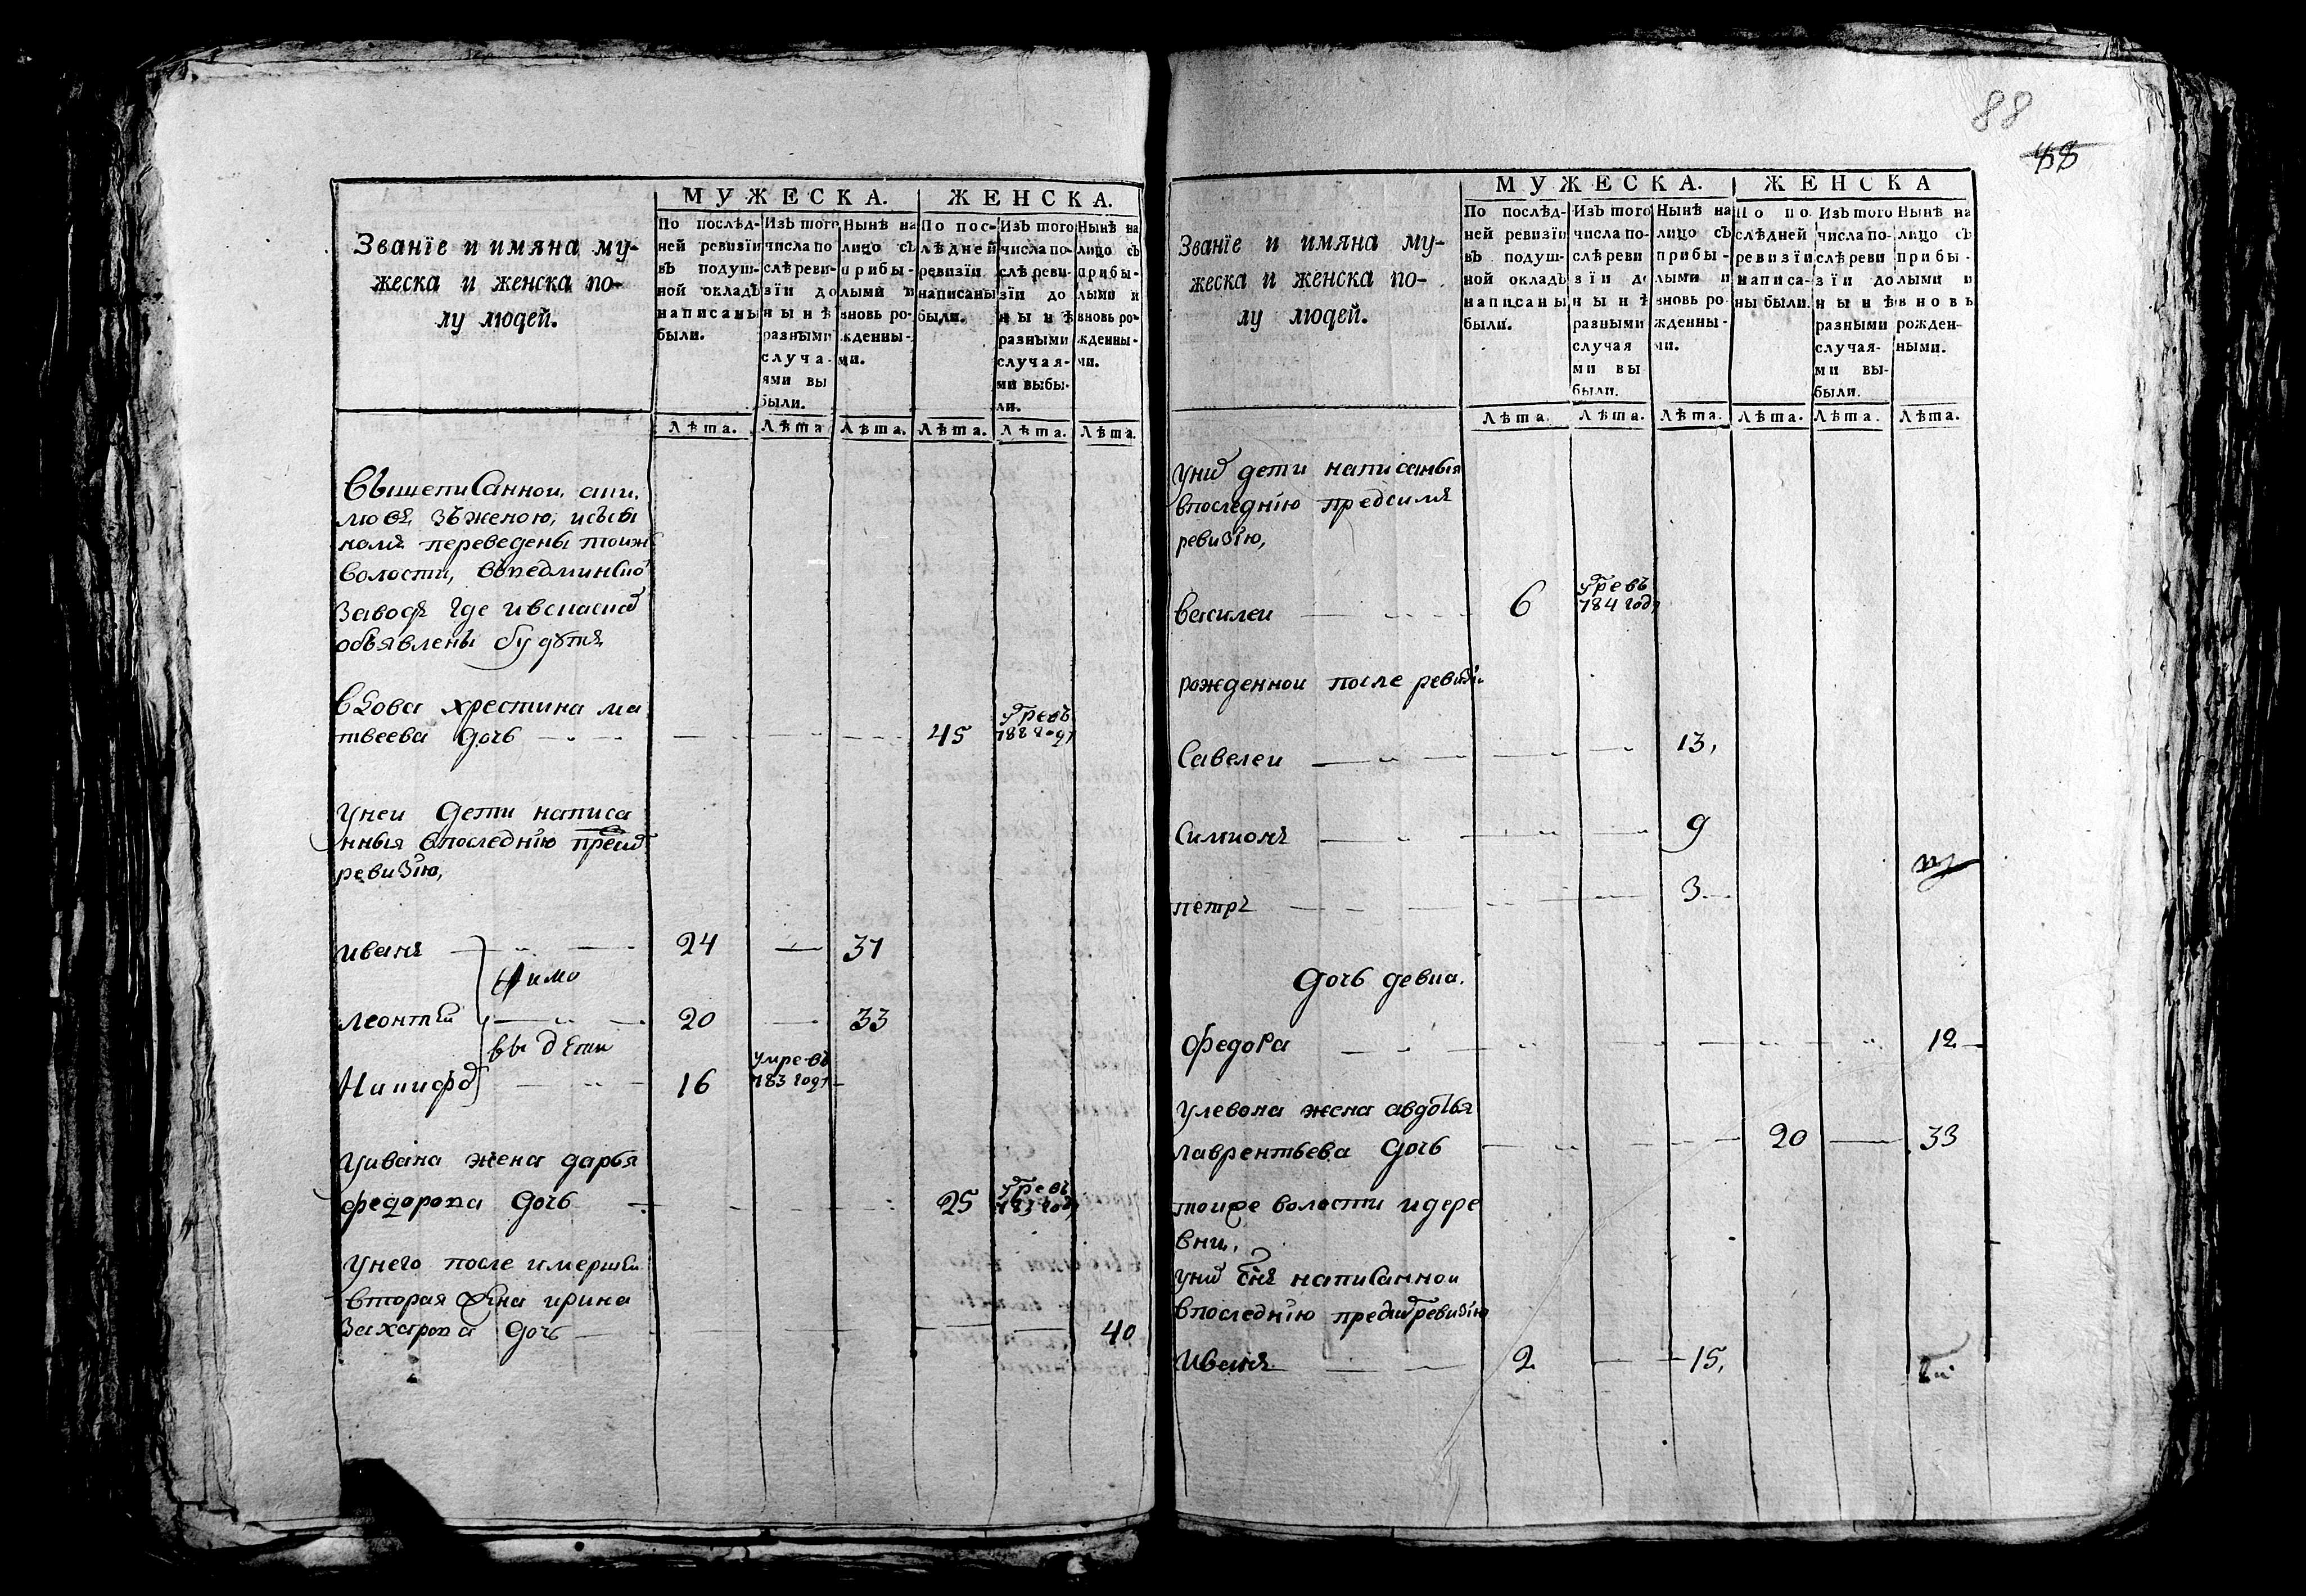 Званїе и имяна му-
жеска и женска по-
лу людей.
МУЖЕСКА.
ЖЕНСКА.
По послѣд-
ней ревизїи
въ подуш-
ной окладъ
написаны
были.
Изъ того
числа по
слѣ реви-
зїи до
нынѣ
разными
случа-
ями вы
были.
Нынѣ на
лицо съ
прибы-
лыми и
вновь ро-
жденны-
ми.
По пос-
лѣдней
ревизїи
написаны
были.
Изъ того
числа по-
слѣ реви-
зїи до
нынѣ
разными
случая-
ми выбы-
ли.
Нынѣ на
лицо съ
прибы-
лыми и
вновь ро-
жденны-
ми.
Лѣта. Лѣта Лѣта. Лѣта. Лѣта. Лѣта.
волости,
Заводѣ где
объявлены будутъ
вдова хрестина ма
твеева дочь 45 788 году
унеи дети написа
нныя впоследнїю
ревизїю,
иванъ 24 31
леонтей 20 33
умре въ
16 783 году
уивана жена дарья
федорова дочь 25 783 году
унего после
вторая жена ирина
Захарова дочь 40
88
Званїе и имяна му-
жеска и женска по-
лу людей.
МУЖЕСКА.
ЖЕНСКА
По послѣд-
ней ревизїи
въ подуш-
ной окладъ
написаны
были.
Изъ того
числа по-
слѣ реви
зїи до
нынѣ
разными
случая
ми вы
были.
Нынѣ на
лицо съ
прибы-
лыми и
вновь ро-
жденны-
ми.
По по.
слѣдней
ревизїи
написа-
ны были.
Изъ того
числа по-
слѣ реви
зїи до
нынѣ
разными
случая-
ми вы-
были.
Нынѣ на
лицо съ
прибы-
лыми и
вновь
рожден-
ными.
Лѣта. Лѣта. Лѣта. Лѣта. Лѣта. Лѣта.
дети написаныя
впоследнїю
ревизїю,
василеи 6 784 году
рожденнои после ревизїи
Савелеи 13,
Симионъ 9
петръ 3
дочь девка.
Федора 12
улевона жена авдотья
лаврентьева дочь 20 33
тоиже волости идере
вни,
написаннои
впоследнїю
иванъ 2 15,